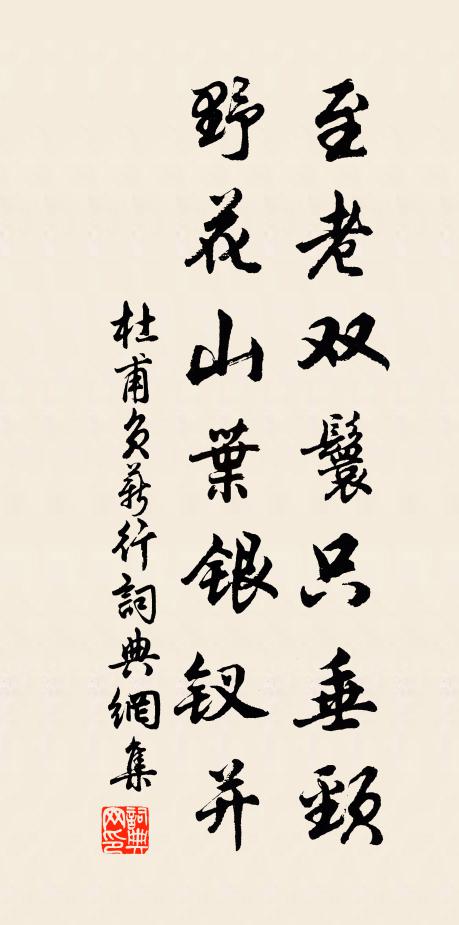 至老双鬟只垂頸
野花山葉银钗并
杜甫負薪行詞典網集
詞典網印